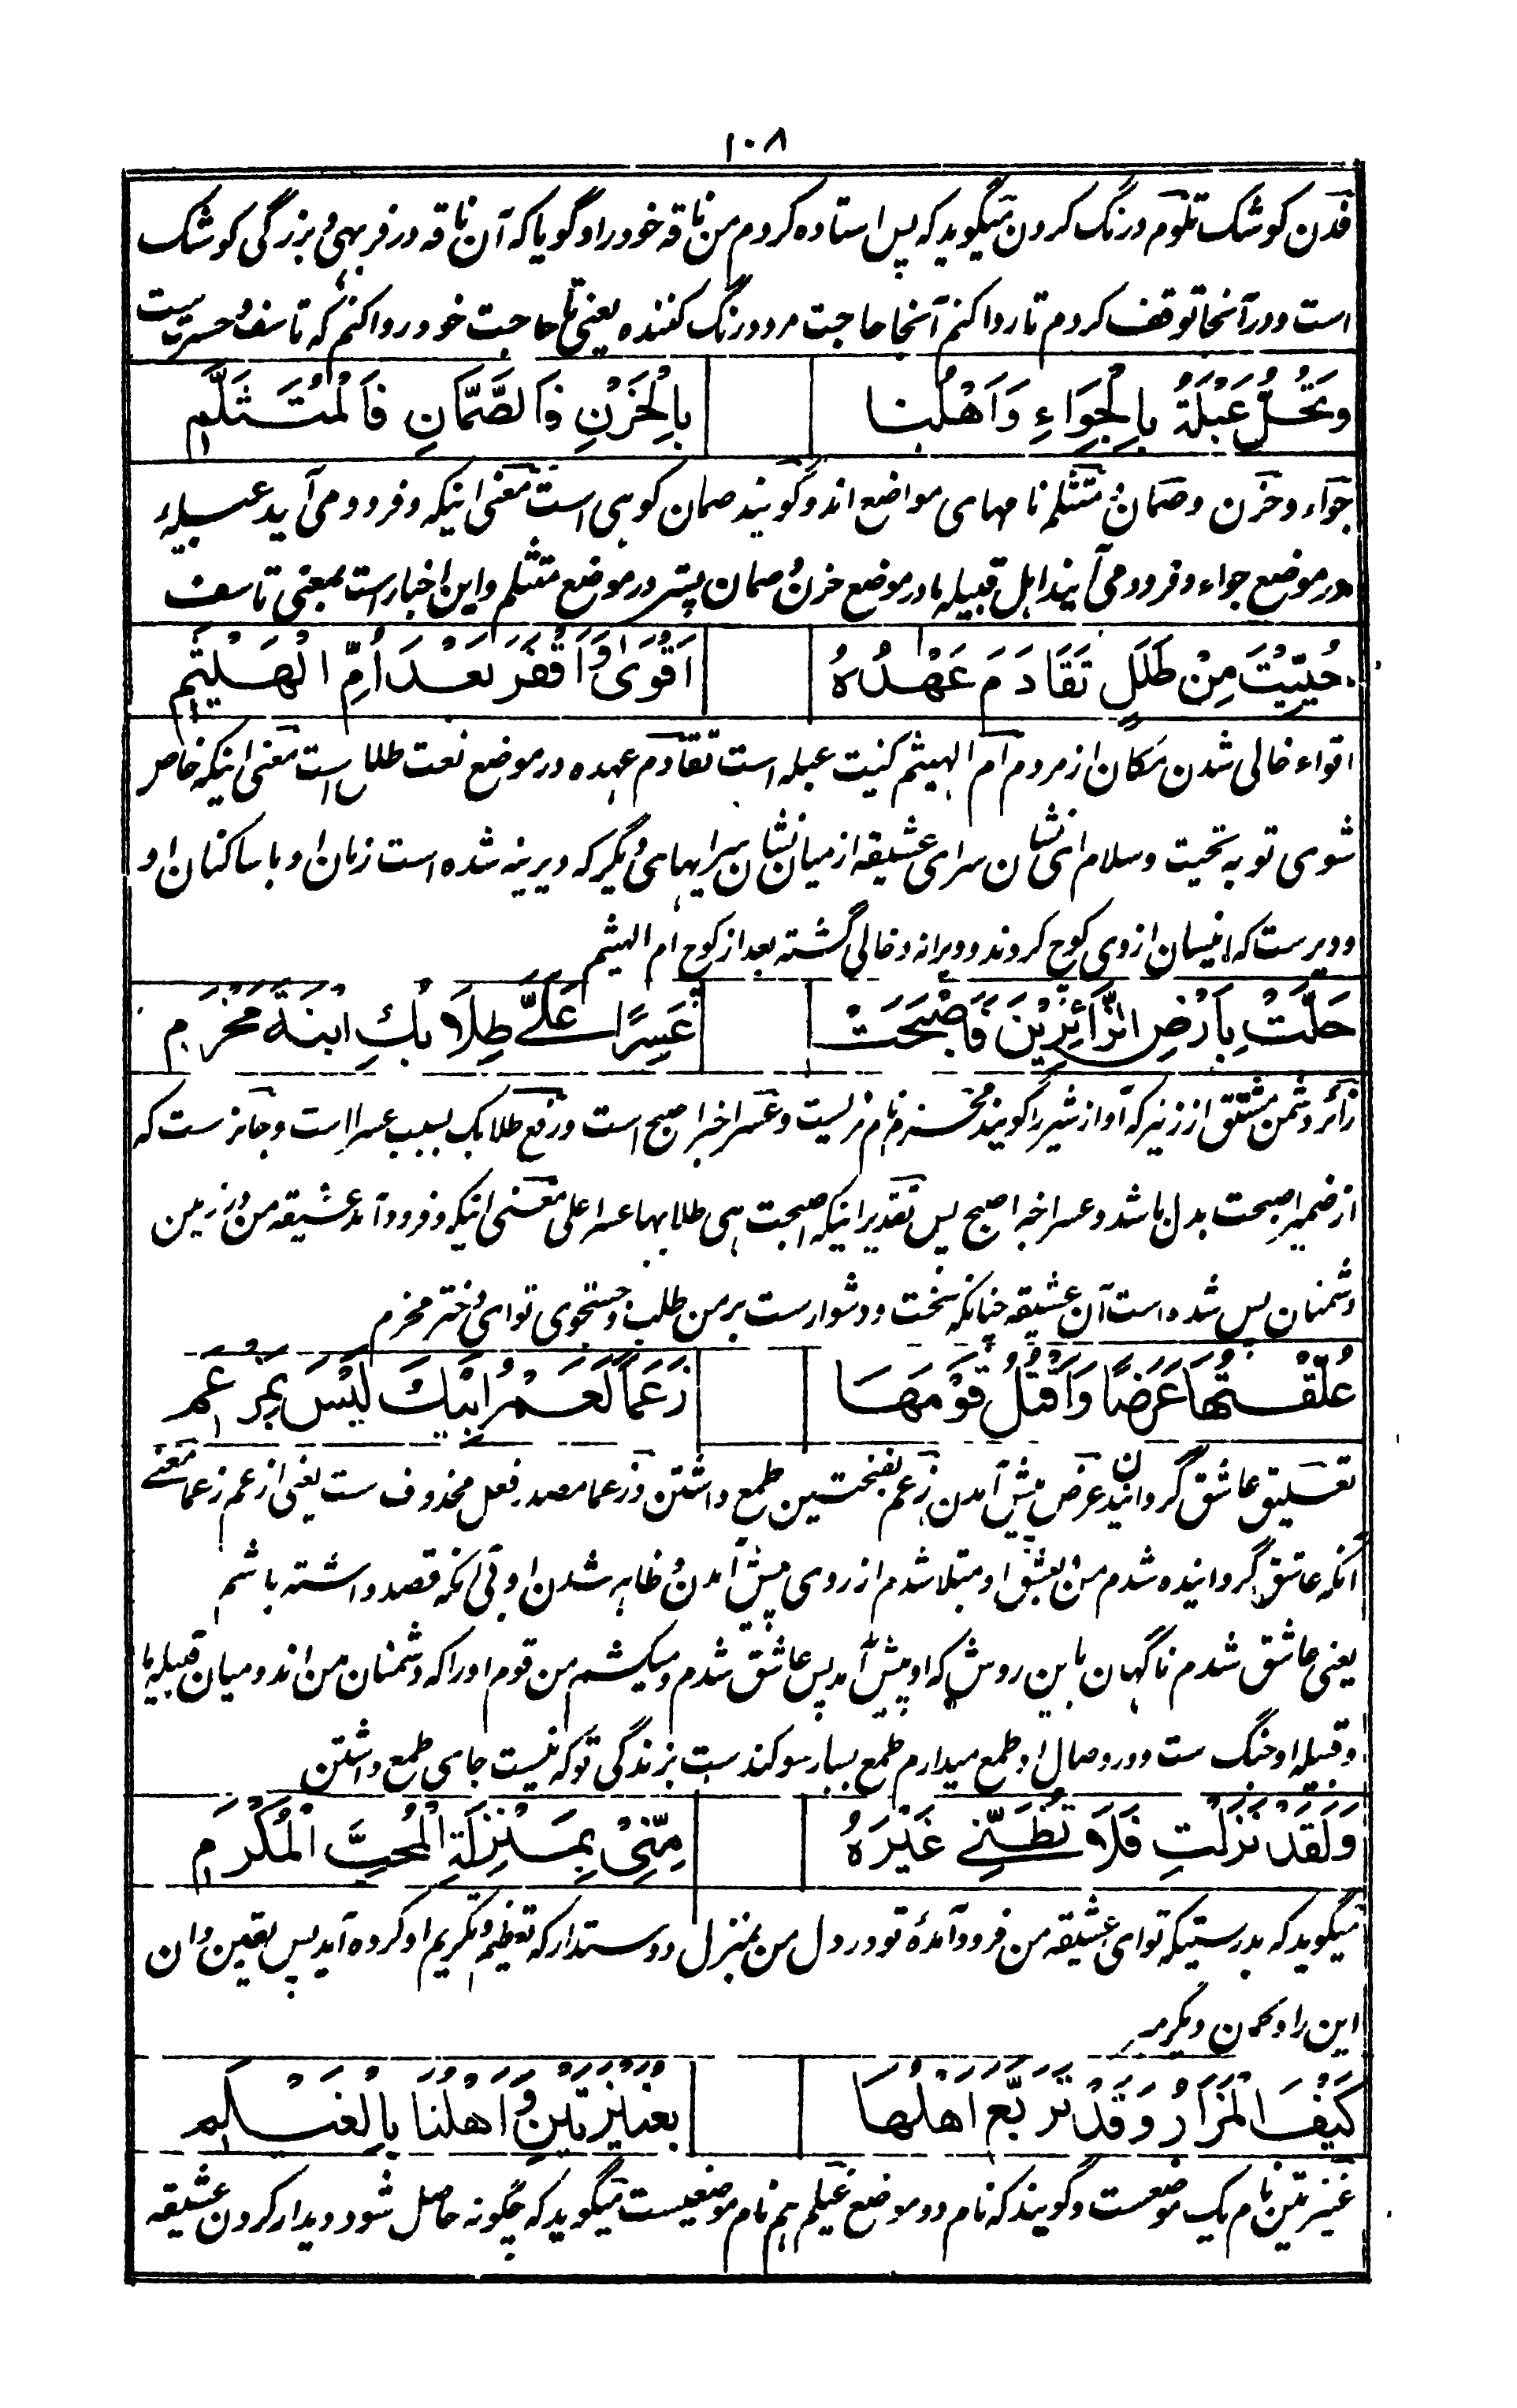 ١٠٨
فدن کوشک تلوم درنگ کردن میگوید که پس استاده کردم من ناقه خود را و گویا که آن ناقه در فربهی و بزرگی کوشک
است و در آنجا توقف کردم تا روا کنم آنجا حاجت مرد درنگ کننده یعنی تا حاجت خود روا کنم که تاسف و حسرت ست
وَتَحُلُّ عَبْلَةُ بِالْجِوَاءِ وَاَهْلُنَا بِالْحَزْنِ فَالصَّمَّانِ فَالْمُتَثَلَّمِ
جواء و حزن و صمان و متثلم نامهای مواضع اند و گویند صمان کوهی است معنی اینکه و فرود می آید عبلیه
در موضع جواء و فرود می آیند اہل قبیلہ ما در موضع حزن و صمان پستر در موضع متثلم و این اخبار است بمعنی تاسف
حُيِّيْتَ مِنْ طَلَلٍ تَقَادَمَ عَهْدُهُ اَقْوَى وَاَقْفَرَ بَعْدَ اُمِّ الْهَيْثَمِ
اقواء خالی شدن مکان از مردم ام الهیثم کنیت عبله است تقادم عهده در موضع نعت طلل است معنی اینکه خاص
شوی تو به تحیت و سلام ای نشان سرای عشیقه از میان نشان سرایهای دیگر که دیرینه شده است زمان او با ساکنان او
و دیرست که انیسان از وی کوچ کردند و ویرانه و خالی گشته بعد از کوچ ام الهیثم
حَلَّتْ بِاَرْضِ الزَّائِرِيْنَ فَاَصْبَحَتْ عَسِرًا عَلَيَّ طِلَابُكِ ابْنَةَ مَخْرَمِ
زائر دشمن مشتق از زئیر که آواز شیر را گویند مخرم نام مردیست و عسرا خبر اصبح است و رفع طلابک بسبب عسرا است و جائزست که
از ضمیر اصبحت بدل باشد و عسرا خبر اصبح پس تقدیر اینکه اصبحت هی طلابها عسرا علی معنی اینکه و فرود آمد عشیقه من در زمین
دشمنان پس شده است آن عشیقه چنانکه سخت و دشوارست بر من طلب و جستجوی تو ای دختر مخرم
عُلِّقْتُهَا عَرَضًا وَاَقْتُلُ قَوْمَهَا زَعْمًا لَعَمْرُ اَبِيْكَ لَيْسَ بِمَزْعَمِ
تعلیق عاشق گردانیدن عرض پیش آمدن زعم بفتحتین طمع داشتن و زعما مصدر فعل محذوف ست یعنی ازعم زعما معنی
آنکه عاشق گردانیده شدم من بعشق او مبتلا شدم از روی پیش آمدن و ظاهر شدن او بی آنکه قصد داشته باشم
یعنی عاشق شدم ناگهان باین روش که او پیش آمد پس عاشق شدم و میکشم من قوم او را که دشمنان من اند و میان قبیله ما
و قبیله او جنگ ست و در وصال او طمع میدارم طمع بسیار سوگند ست بزندگی تو که نیست جای طمع داشتن
وَلَقَدْ نَزَلْتِ فَلَا تَظُنِّي غَيْرَهُ مِنِّيْ بِمَنْزِلَةِ الْمُحَبِّ الْمُكْرَمِ
میگوید که بدرستیکه تو ای عشیقه من فرود آمدۀ تو در دل من بمنزل دوستدار که تعظیم و تکریم او کرده آید پس یقین دان
این را و گمان دیگر مبر
كَيْفَ الْمَزَارُ وَقَدْ تَرَبَّعَ اَهْلُهَا بِعُنَيْزَتَيْنِ وَاَهْلُنَا بِالْغَيْلَمِ
عنیزتین نام یک موضعست و گویند که نام دو موضع غیلم هم نام موضعیست میگوید که چگونه حاصل شود دیدار کردن عشیقه